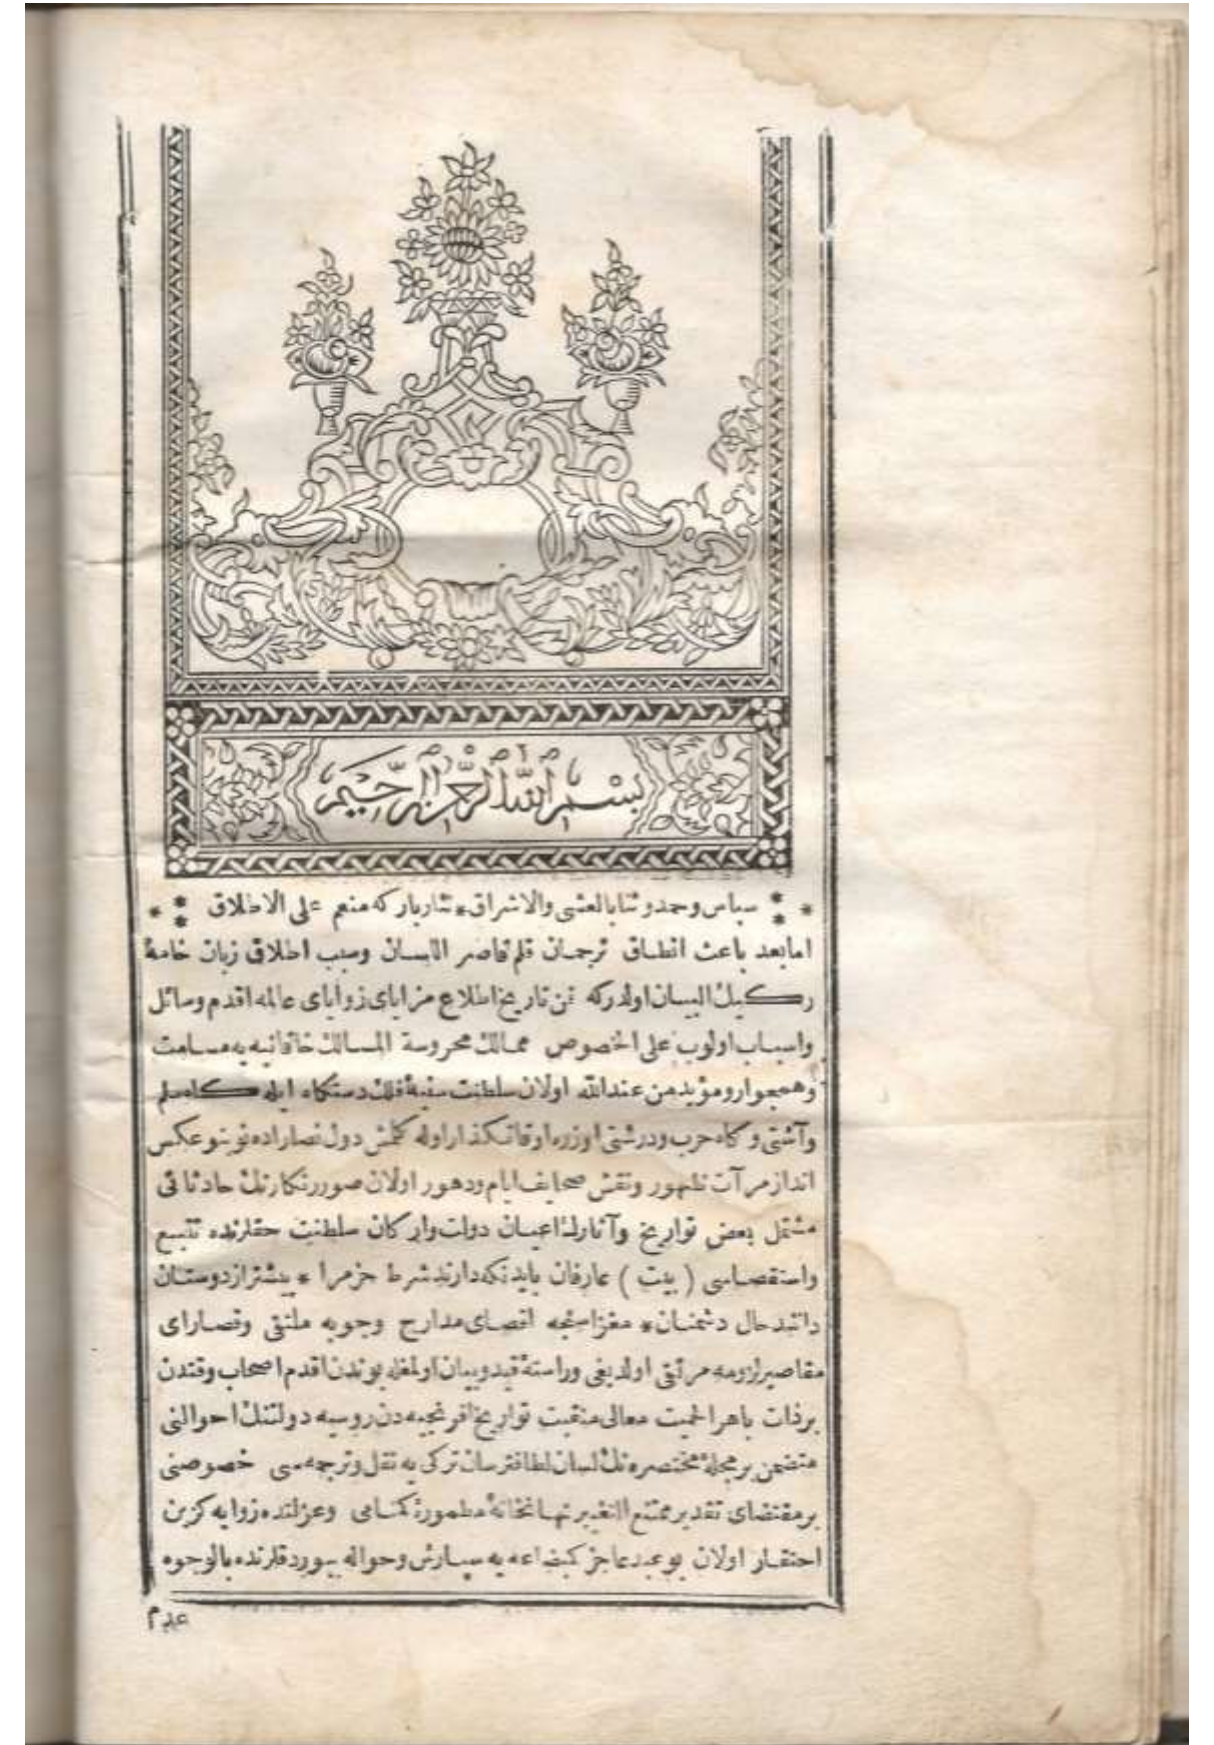 بسم الله الرحمن الرحيم
* ⁑ سپاس وحمد وثنا بالعشى والاشراق * نثار باركه منعم على الاطلاق ⁑ *
اما بعد باعث انطاق ترجمان قلم قاصر اللسان وسبب اطلاق زبان خامهٔ
ركيك البيان اولدركه فن تاريخ اطلاع مزاياى زواياى عالمه اقدم وسائل
واسباب اولوب على الخصوص ممالك محروسة المسالك خاقانيه يه مسامت
وهمجوار ومؤيد من عند الله اولان سلطنت سنيهٔ فلك دستكاه ايله كاه سلم
وآشتى وكاه حرب ودرشتى اوزره اوقاتكذار اوله كلمش دول نصاراده نوبنو عكس
انداز مرآت ظهور ونقش صحايف ايام ودهور اولان صور رنكارنك حادثاتى
مشتمل بعض تواريخ وآثارك اعيان دولت واركان سلطنت حقلرنده تتبع
واستقصاسى ( بيت ) عارفان بايد نكه دارند شرط حزم را * بيشتر از دوستان
دانند حال دشمنان * مغزاسنجه اقصاى مدارج وجوبه ملتقى وقصاراى
مقاصير لزومه مرتقى اولديغى وراستهٔ قيد وبيان اولمغله بوندن اقدم اصحاب وقتدن
بر ذات باهر الحميت معالى منقبت تواريخ افرنجيه دن روسيه دولتنك احوالنى
متضمن بر مجلهٔ مختصره نك لسان لطافترسان تركى يه نقل وترجمه سى خصوصنى
بر مقتضاى تقدير ممتنع التغيير نهانخانهٔ مطمورهٔ كمنامى وعزلتده زوايه كزين
احتقار اولان بو عبد عاجز كم بضاعه يه سپارش وحواله بيوردقلرنده بالوجوه
عدم